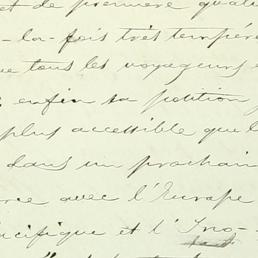 et de première quali
-la-fois très tempéré
que tous les voyageurs e
enfin sa position
plus accessible que l
dans un prochain
rce avec l'Europe
acifique et l'Ino-